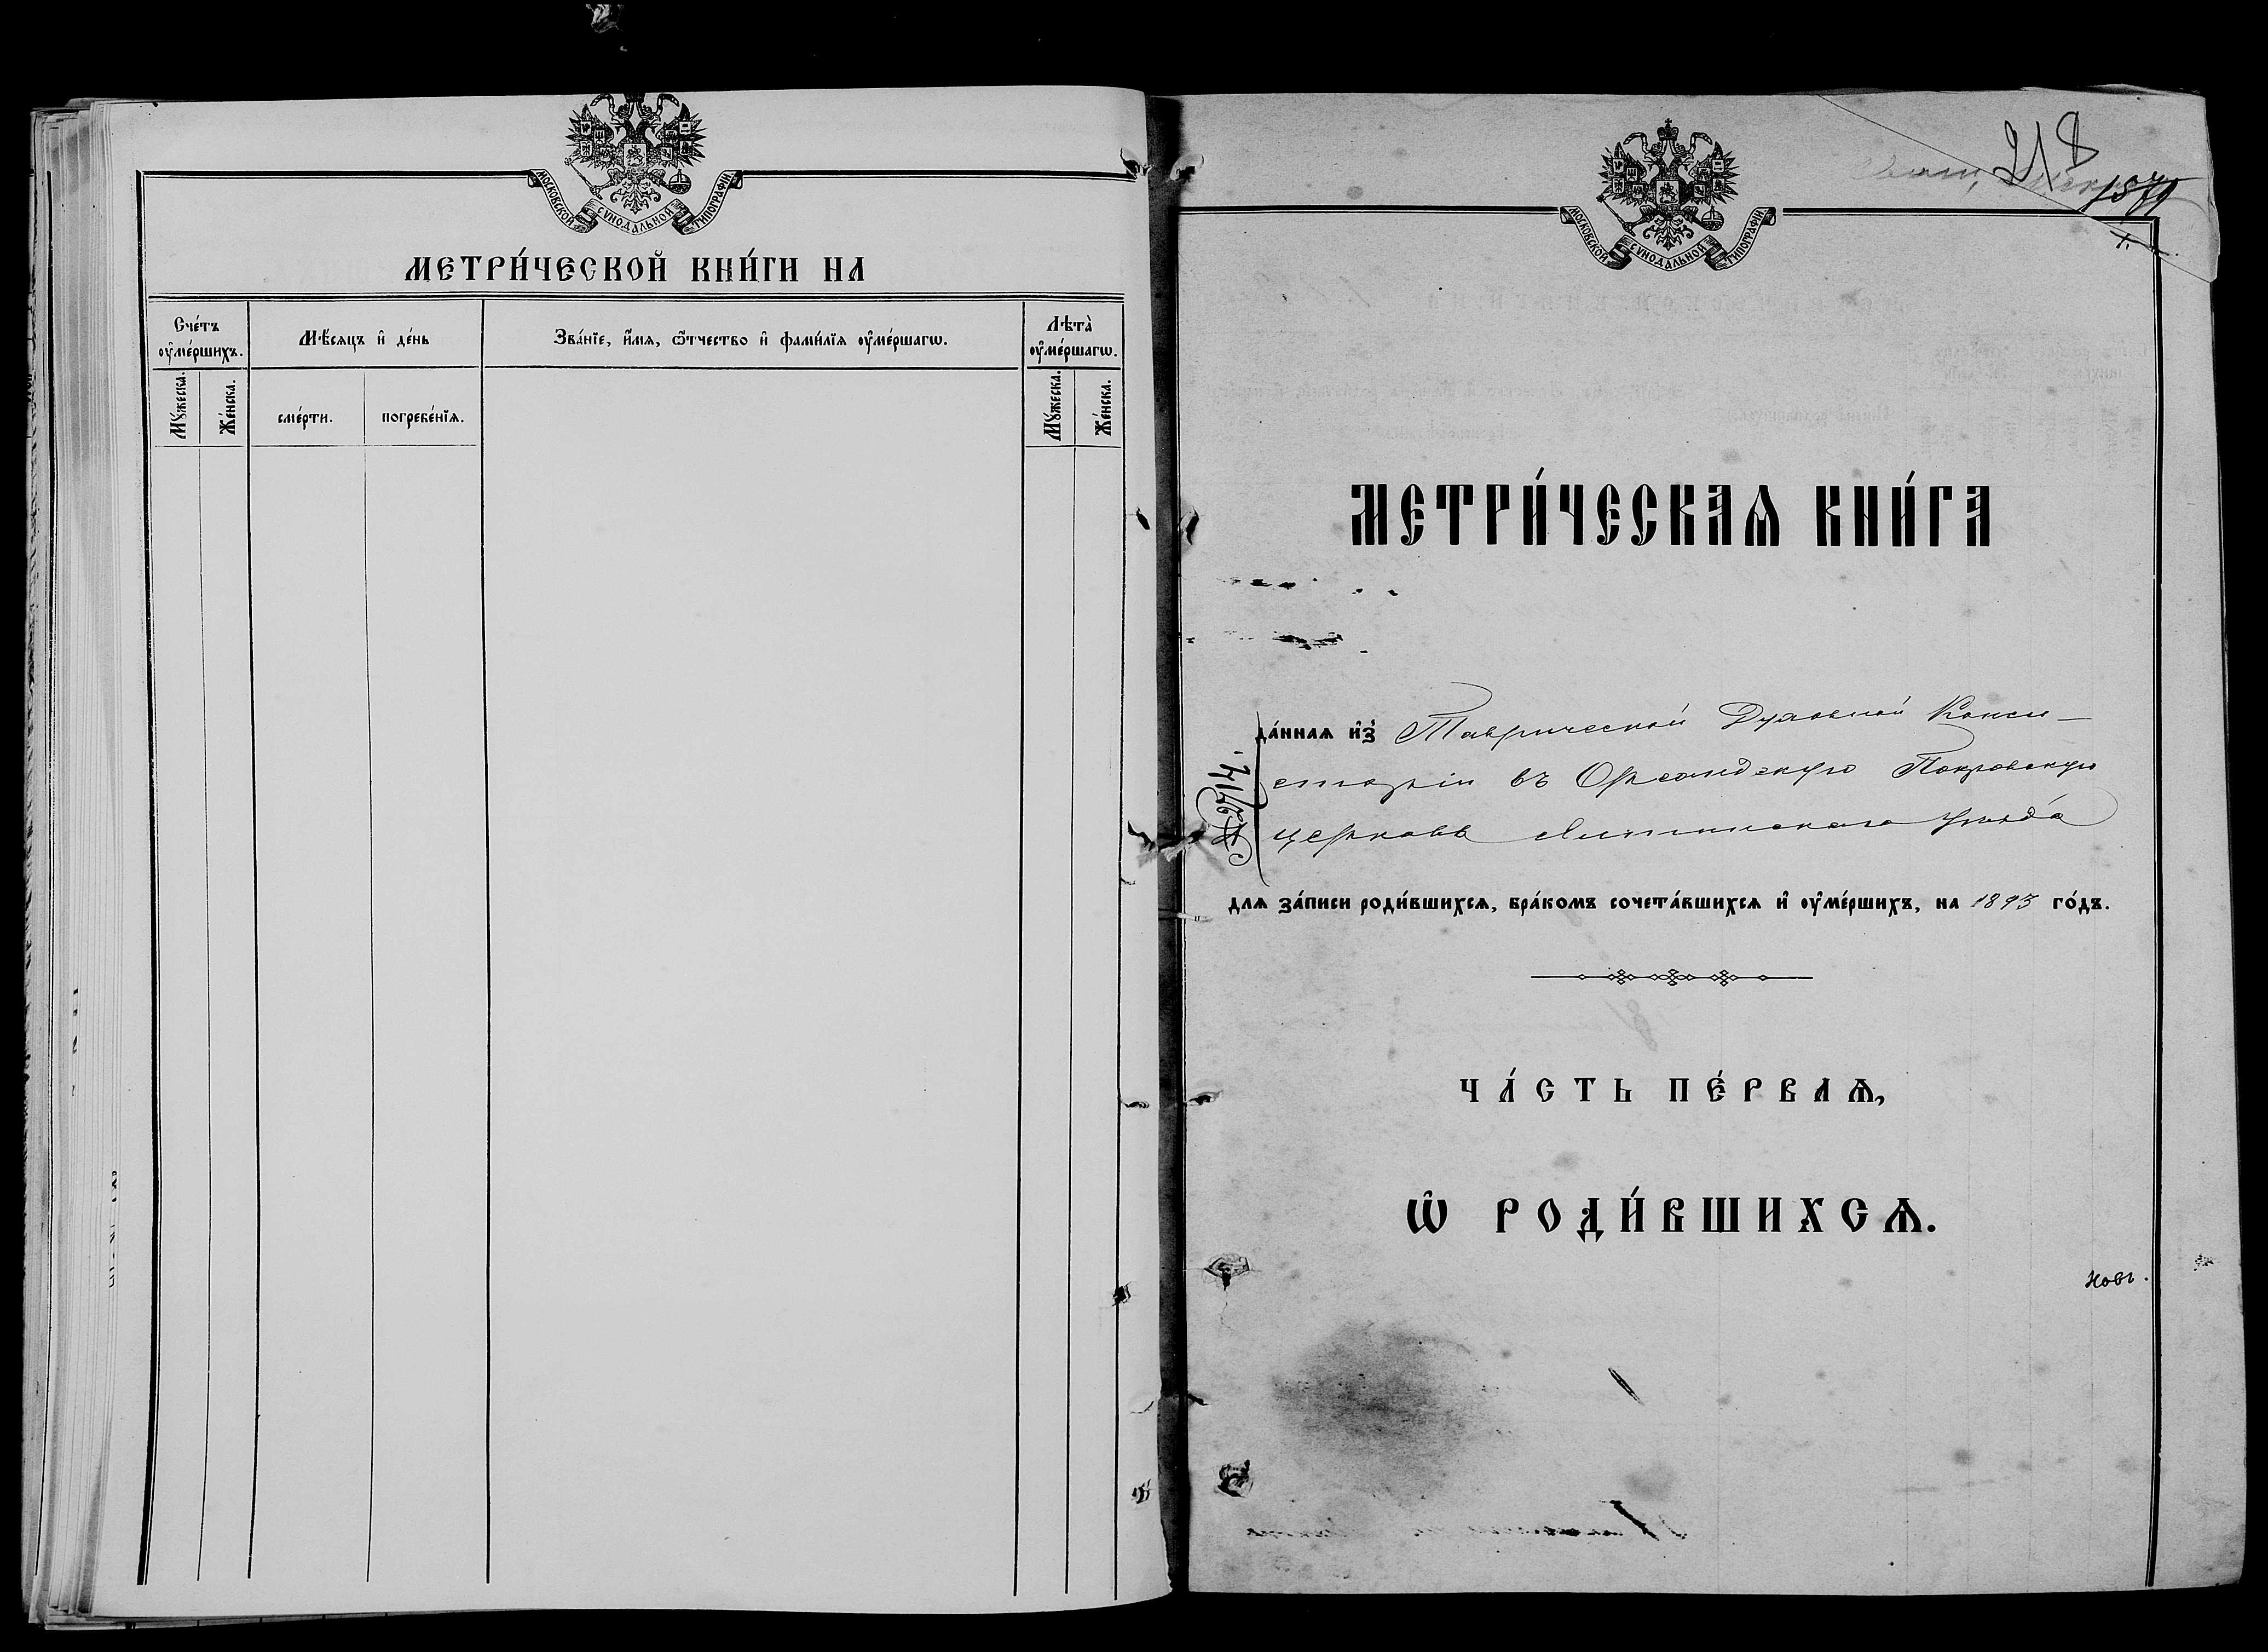 МОСКОВСКОЙ СѴНОДАЛЬНОЙ ТИПОГРАФІИ
МЕТРИ́ЧЕСКОЙ КНИ́ГИ НА
Сче́тъ ᲂу҆ме́ршихъ.
Мѣ́сяцъ и҆ де́нь
Зва́нїе, и҆́мя, ѻ҆́тчество и҆ фами́лїя ᲂу҆ме́ршагѡ.
Лѣта̀ ᲂу҆ме́ршагѡ.
Мꙋ́жеска.
Же́нска.
сме́рти.
погребе́нїя.
Мꙋ́жеска.
Же́нска.
218
МОСКОВСКОЙ СѴНОДАЛЬНОЙ ТИПОГРАФІИ
МЕТРИ́ЧЕСКАѦ КНИ́ГА
да́нная и҆з̾ Таврической Духовной Конси-
сторіи въ Ореандскую Покровскую
церковь Ялтинскаго уѣзда
№ 2714.
для за́писи роди́вшихся, бра́комъ сочета́вшихся и҆ ᲂу҆ме́ршихъ, на 1893 го́дъ.
ЧА́СТЬ ПЕ́РВАѦ,
Ѡ҆ РОДИ́ВШИХСѦ.
Новг.